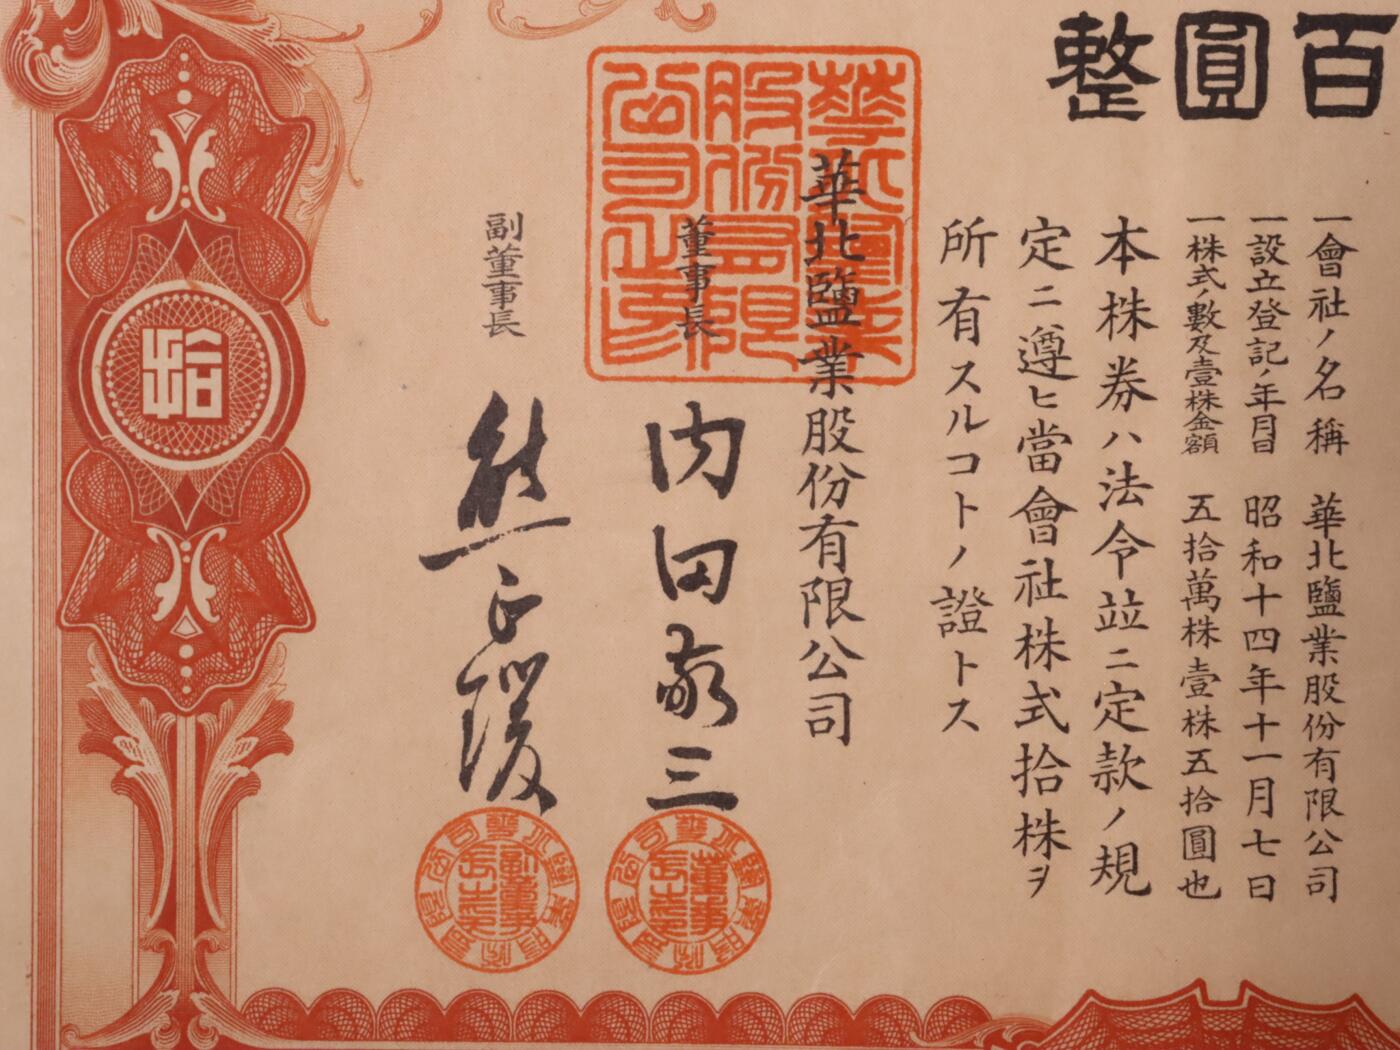 百圓整
一會社ノ名稱 華北鹽業股份有限公司
一設立登記ノ年月日 昭和十四年十一月七日
一株式ノ數及壹株金額 五拾萬株壹株五拾圓也
本株券ハ法令竝ニ定款ノ規
定ニ遵ヒ當會社株式拾株ヲ
所有スルコトノ證トス
華北鹽業股份有限公司
華北鹽業
股份有限
公司之印
董事長 内田敬三
副董事長 熊正瑗
拾